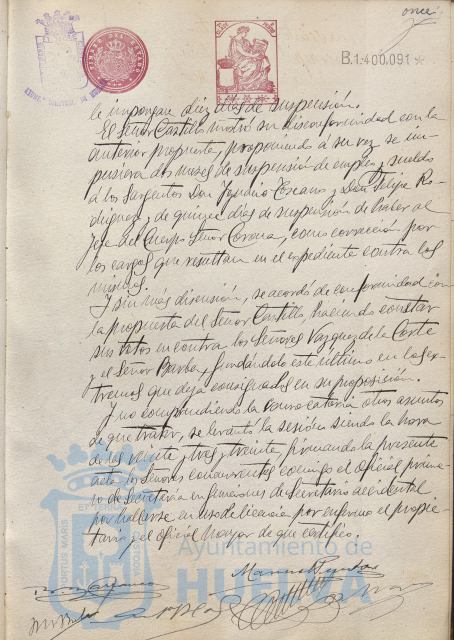 once
B.1.400.091
le impongan diez días de suspensión.
El Señor Castillo mostró su disconformidad con la
anterior propuesta, proponiendo á su vez se im-
pusiera dos meses de suspensión de empleo y sueldo
á los Sargentos Don Ignacio Toscano y Don Felipe Ro-
dríguez y de quince días de suspensión de haber al
Jefe del Cuerpo Señor Corona, como corrección por
los cargos que resultan en el expediente contra los
mismos.
Y sin más discusión, se acordó de conformidad con
la propuesta del Señor Castillo, haciendo constar
sus votos en contra los Señores Vazquez de la Corte
y el Señor Barba, fundándolo este último en los ex-
tremos que deja consignados en su proposición.
Y no comprendiendo la convocatoria otros asuntos
de que tratar, se levantó la sesión siendo la hora
de las veinte y tres y treinta, firmando la presente
acta los Señores concurrentes conmigo el Oficial prime-
ro de Secretaría en funciones de Secretario accidental
por hallarse en uso de licencia por enfermo el propie-
tario y el Oficial Mayor de que certifico.
PORTUS MARIS
ET TERRE
Ayuntamiento de
HUELVA